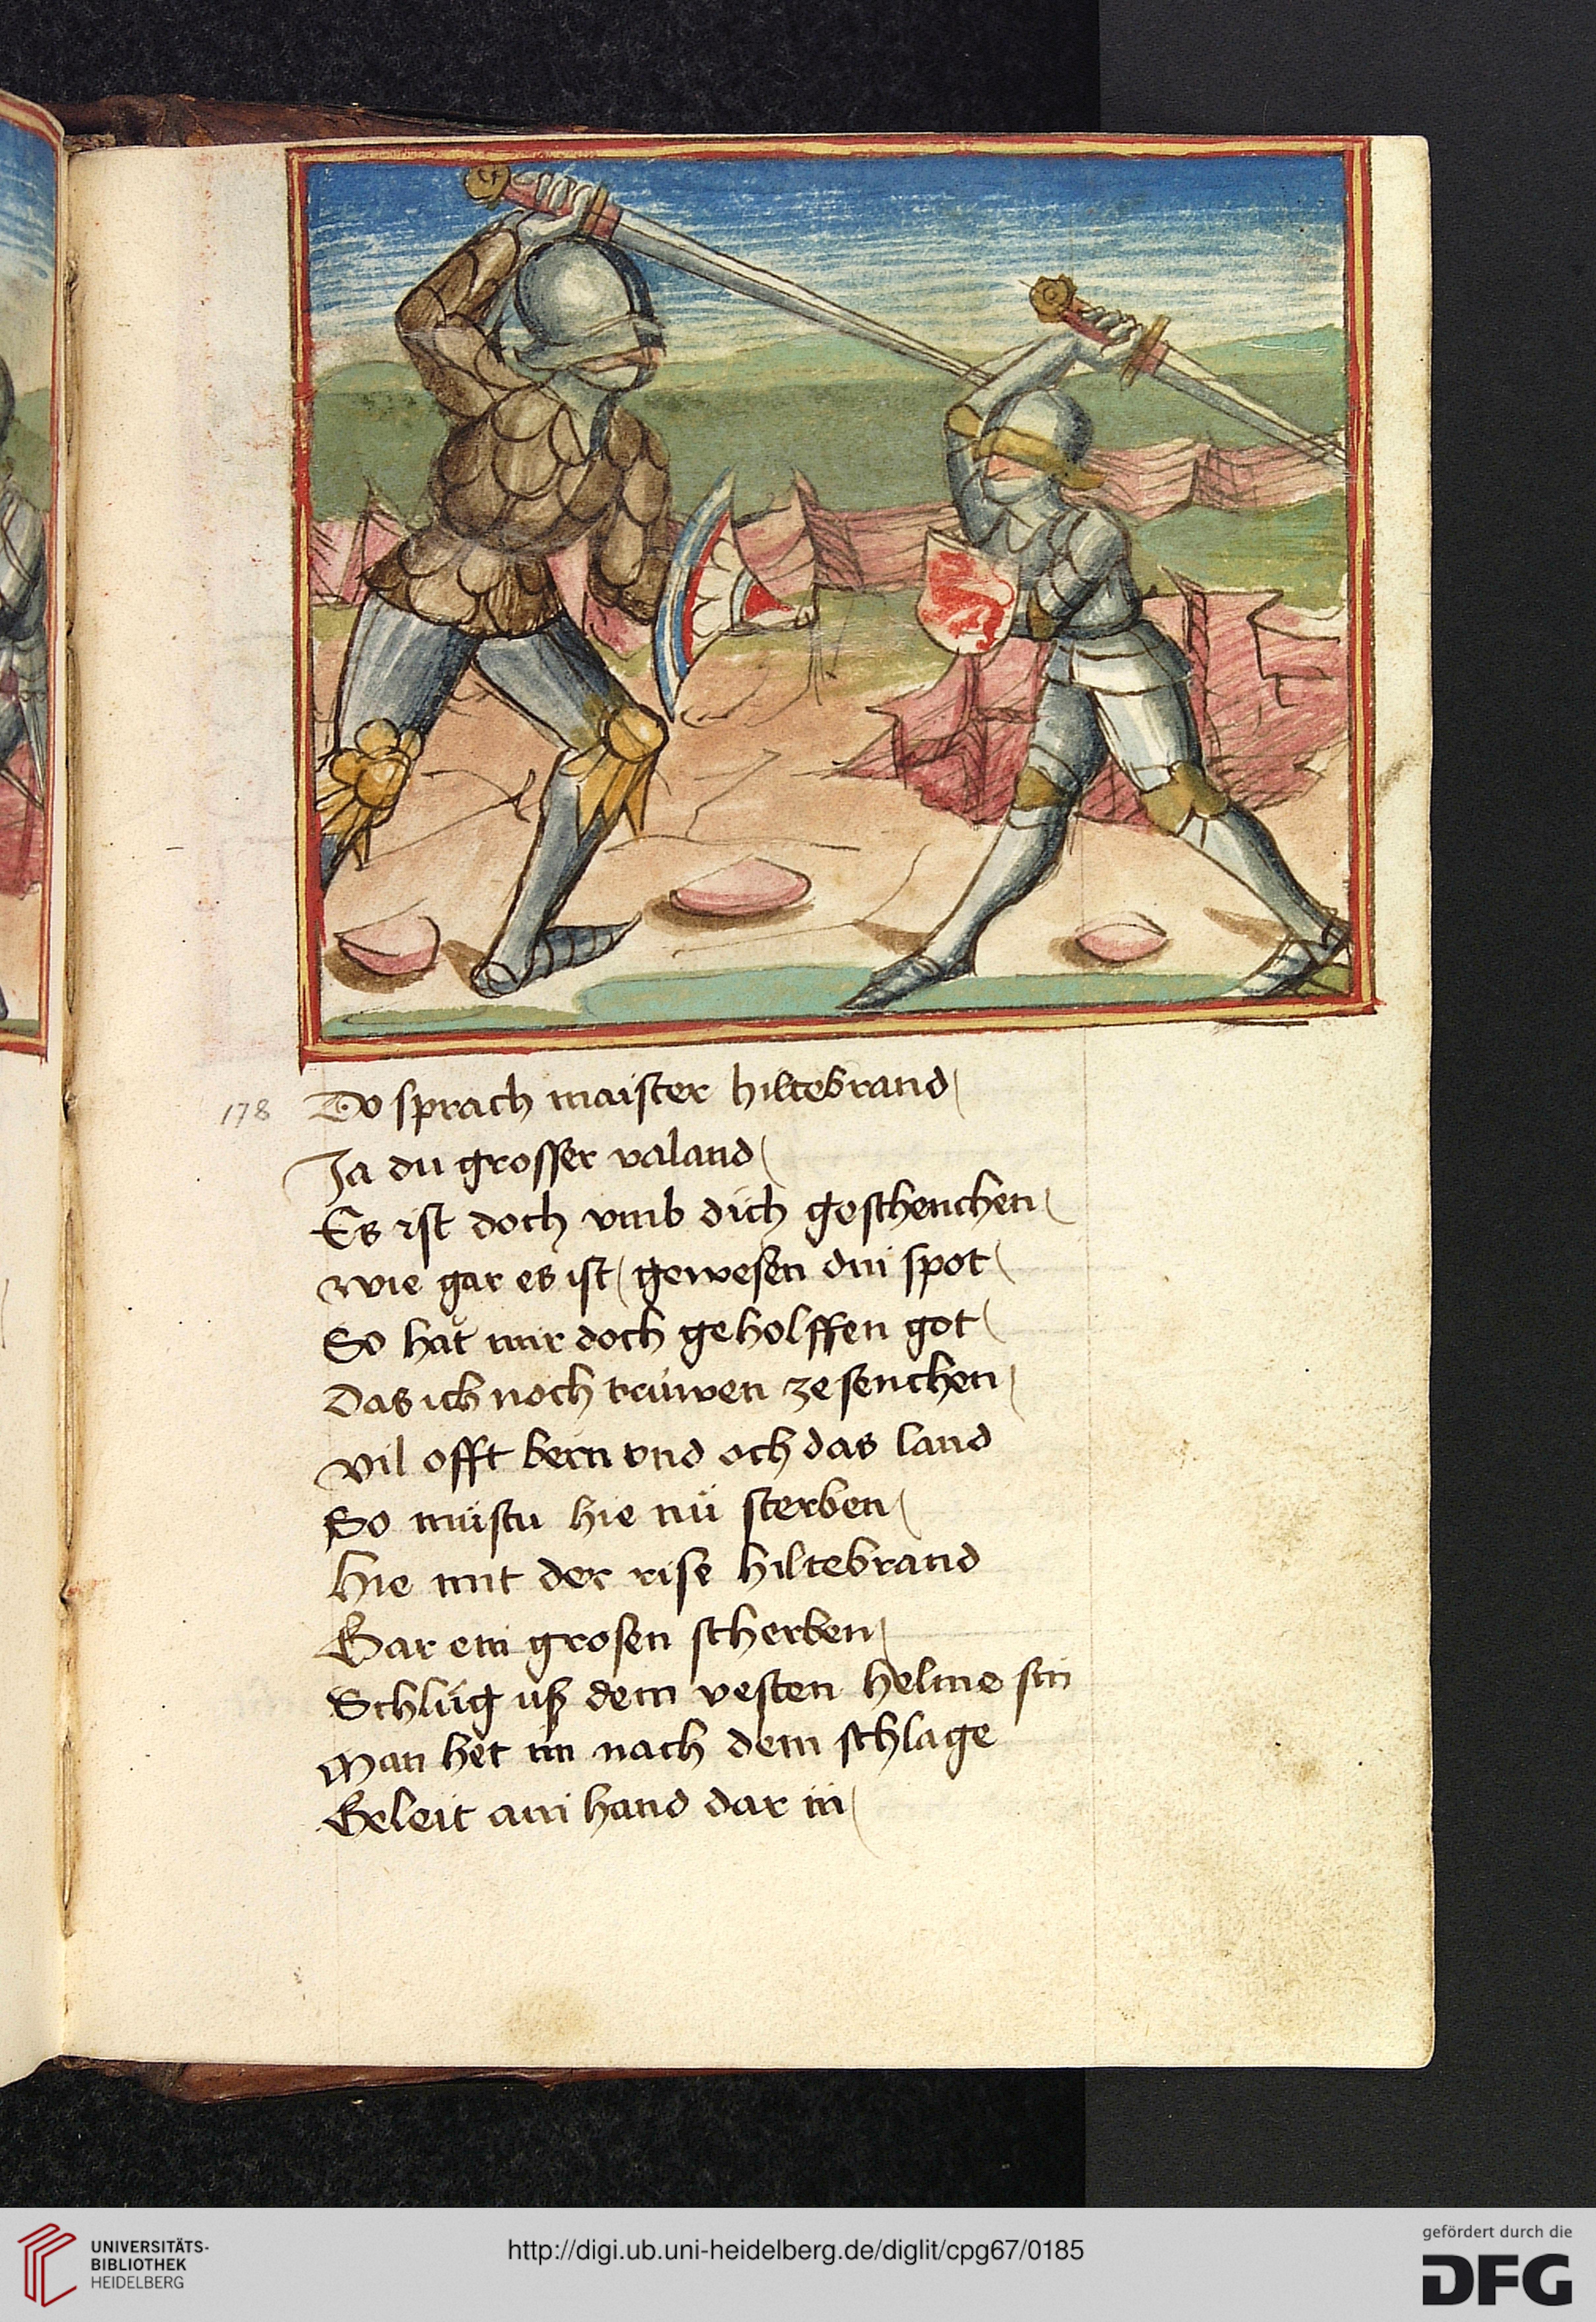 178 Do sprach maister hiltebrand
Ja du grosser valand
Es ist doch vmb dich geschenchen
wie gar es ist gewesen din spot
So hät mir doch geholffen got
Das ich noch trüwen ze senchen
vil offt bern vnd och das land
So müstu hie nü sterben
Hie mit der rise hiltebrand
Gar ein grosen scherben
Schlüg uß dem vesten helme sin
Man het im nach dem schlage
Geleit ain hand dar in
UNIVERSITÄTS-
BIBLIOTHEK
HEIDELBERG
http://digi.ub.uni-heidelberg.de/diglit/cpg67/0185
gefördert durch die
DFG